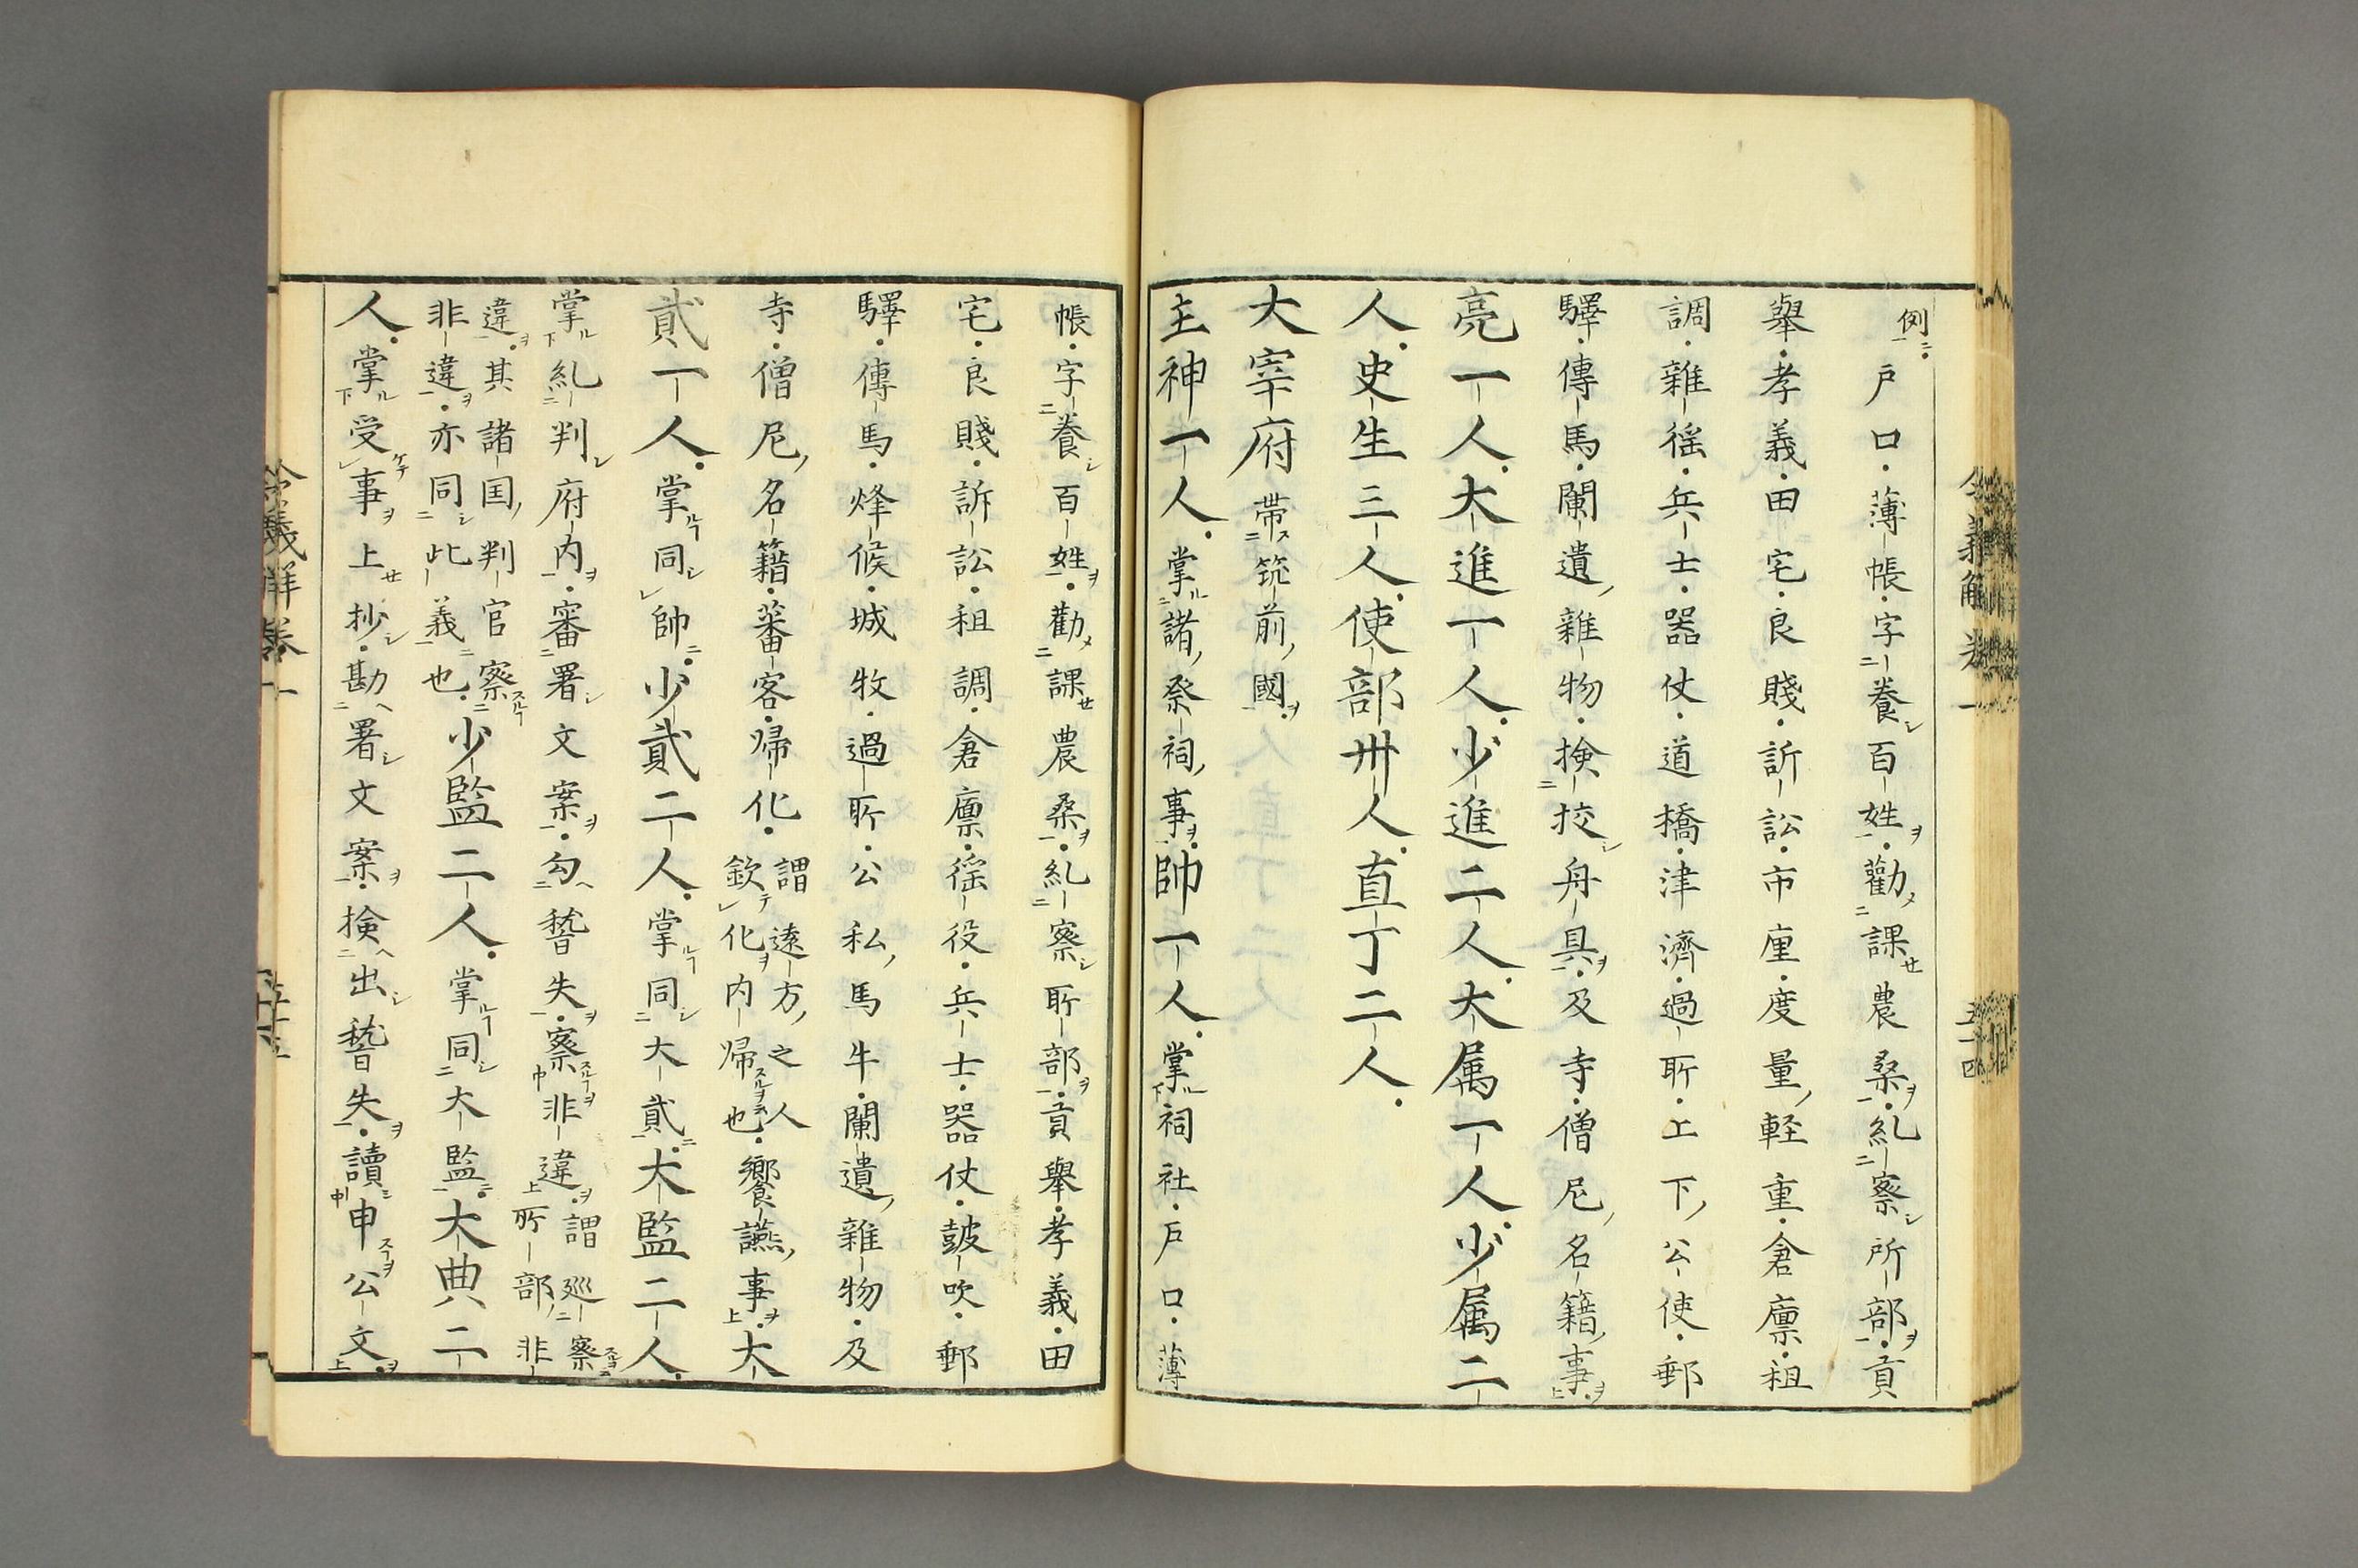 例戸口薄帳字養百姓勸課農桑糺察所部貢
舉孝義田宅良賤訴訟市廛度量軽重倉廩租
調雜徭兵士器仗道橋津濟過所上下公使郵
驛傳馬闌遺雜物検挍舟具及寺僧尼名籍事
亮一人大進一人少進二人大属一人少属二
人史生三人使部卅人直丁二人
大宰府帯筑前國
主神一人掌諸祭祠事帥一人掌祠社戸口薄
帳字養百姓勸課農桑糺察所部貢舉孝義田
宅良賤訴訟租調倉廩徭役兵士器仗皷吹郵
驛傳馬烽候城牧過所公私馬牛闌遺雜物及
寺僧尼名籍蕃客帰化謂遠方之人欽化内帰也饗讌事大
貳一人掌同帥少貳二人掌同大貳大監二人
掌糺判府内審署文案勾稽失察非違謂巡察所部非
違其諸国判官察非違亦同此義也少監二人掌同大監大典二
人掌受事上抄勘署文案検出稽失讀申公文
令義解巻一
五十四
令義解巻一
五十五